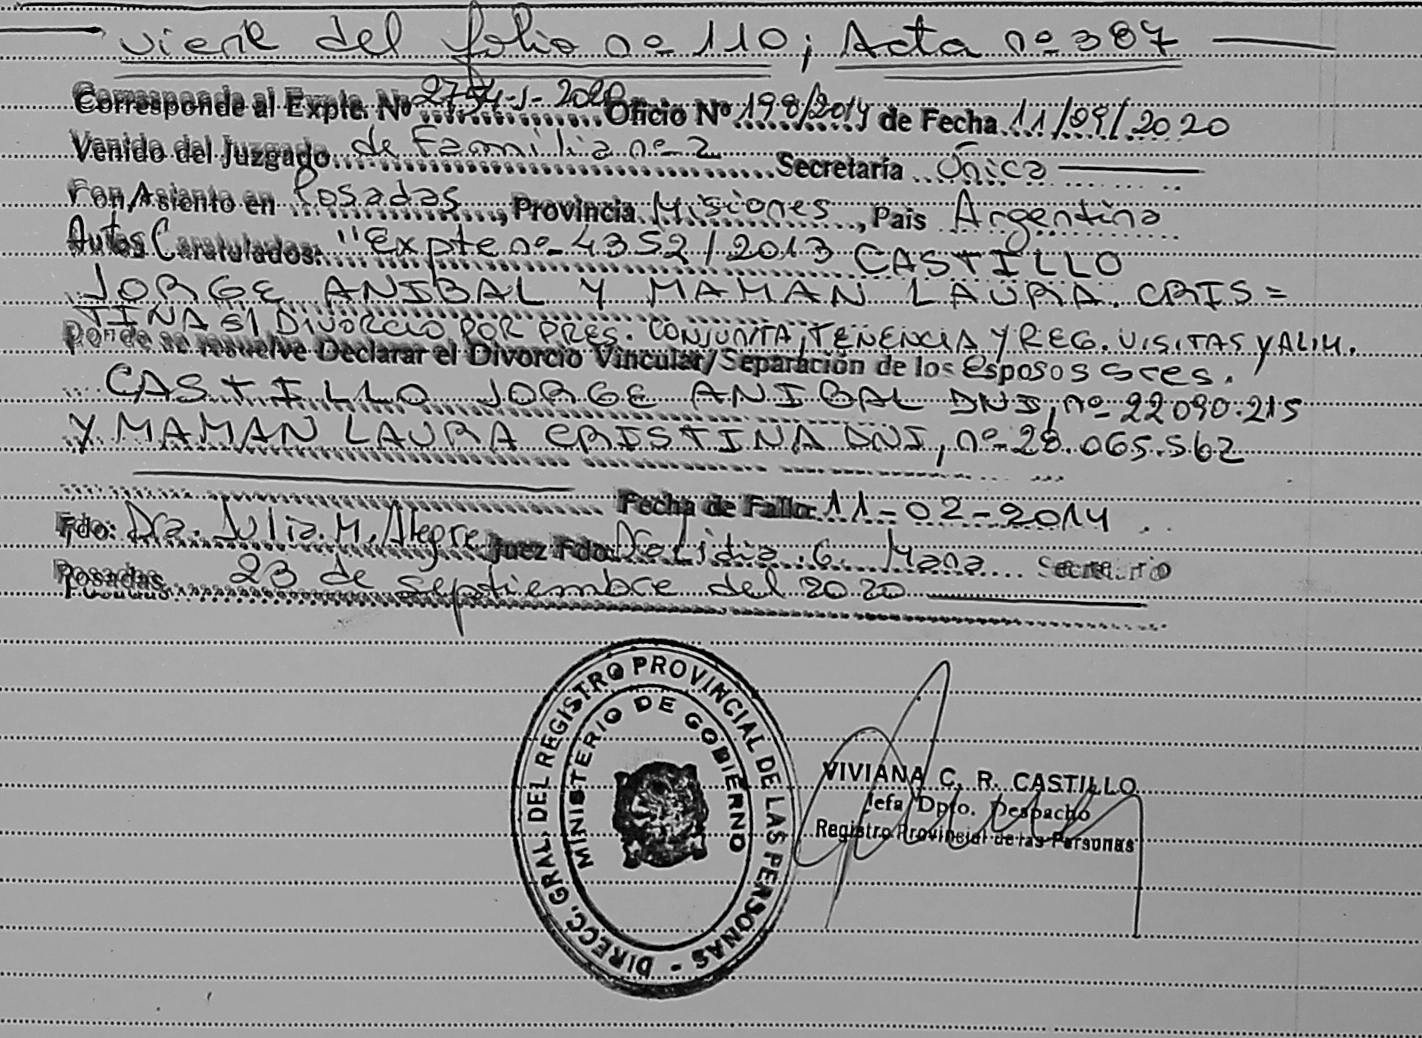 viene del folio nº 110; Acta nº 387
Corresponde al Expte. Nº 2754-J-2020 Oficio Nº 198/2014 de Fecha 11/09/2020
Venido del Juzgado de Familia nº 2 Secretaría Única
Con Asiento en Posadas, Provincia Misiones, País Argentina
Autos Caratulados: "Expte nº 4352/2013 CASTILLO
JORGE ANIBAL Y MAMAN LAURA CRIS=
TINA S/ DIVORCIO POR PRES. CONJUNTA, TENENCIA Y REG. VISITAS Y ALIM.
Donde se resuelve Declarar el Divorcio Vincular/Separación de los Esposos Sres.
CASTILLO JORGE ANIBAL DNI, nº 22090.215
Y MAMAN LAURA CRISTINA DNI, nº 28.065.562
Fecha de Fallo: 11-02-2014
Fdo: Dra. Julia M. Alegre Juez Fdo: G. Secretario
Posadas 23 de septiembre del 2020
DIRECC. GRAL. DEL REGISTRO PROVINCIAL DE LAS PERSONAS -
MINISTERIO DE GOBIERNO
VIVIANA C. R. CASTILLO
Jefa Dpto. Despacho
Registro Provincial de las Personas